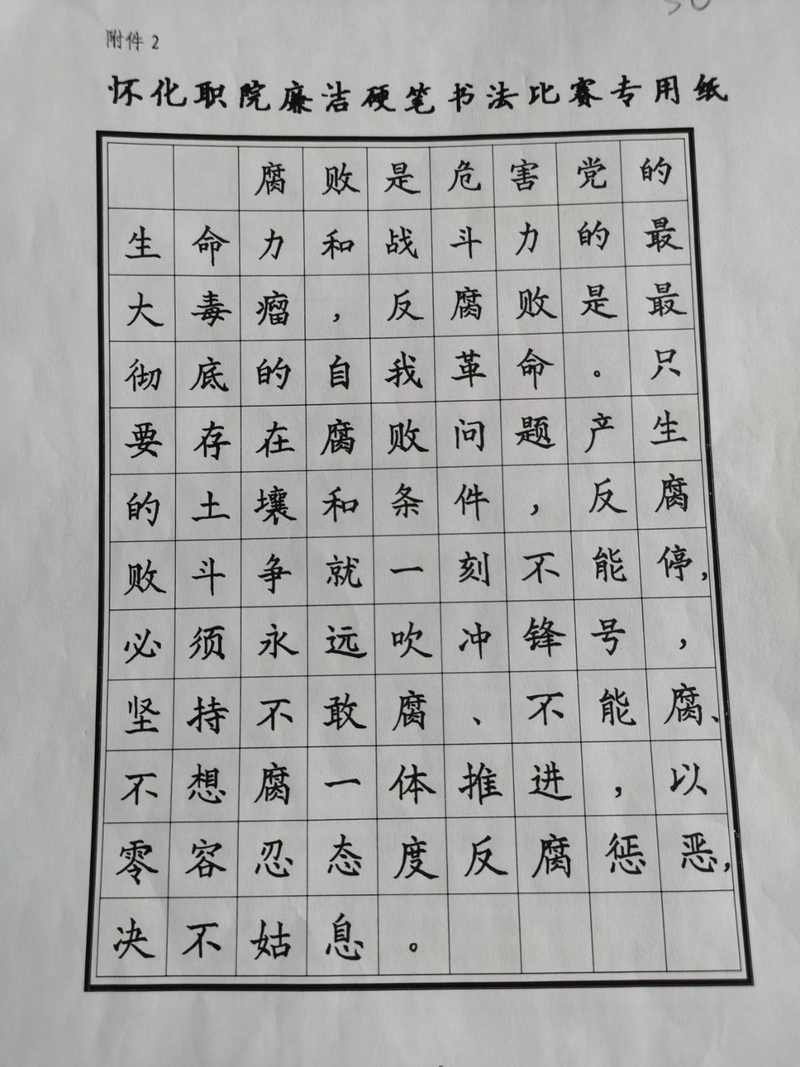 附件2
怀化职院廉洁硬笔书法比赛专用纸
腐败是危害党的
生命力和战斗力的最
大毒瘤，反腐败是最
彻底的自我革命。只
要存在腐败问题产生
的土壤和条件，反腐
败斗争就一刻不能停，
必须永远吹冲锋号，
坚持不敢腐、不能腐、
不想腐一体推进，以
零容忍态度反腐惩恶，
决不姑息。